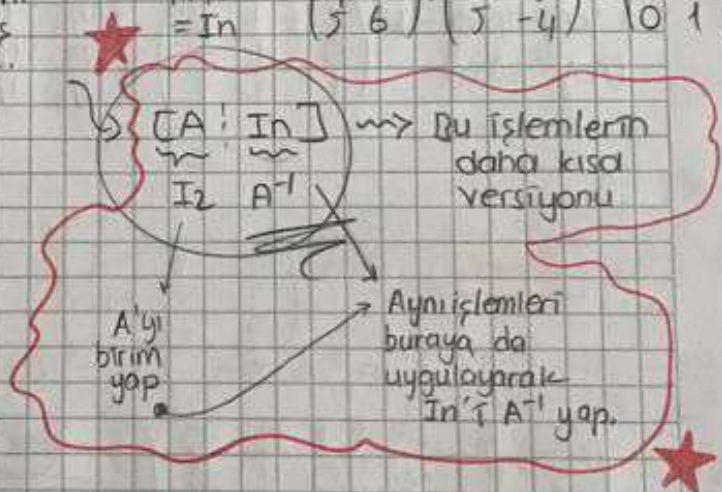 = In (5 6) (5 -4) 0 1
[A ⋮ In] ⇝ Bu işlemlerin
daha kısa
versiyonu
I2 A⁻¹
A'yı
birim
yap
Aynı işlemleri
buraya da
uygulayarak
In'i A⁻¹ yap.